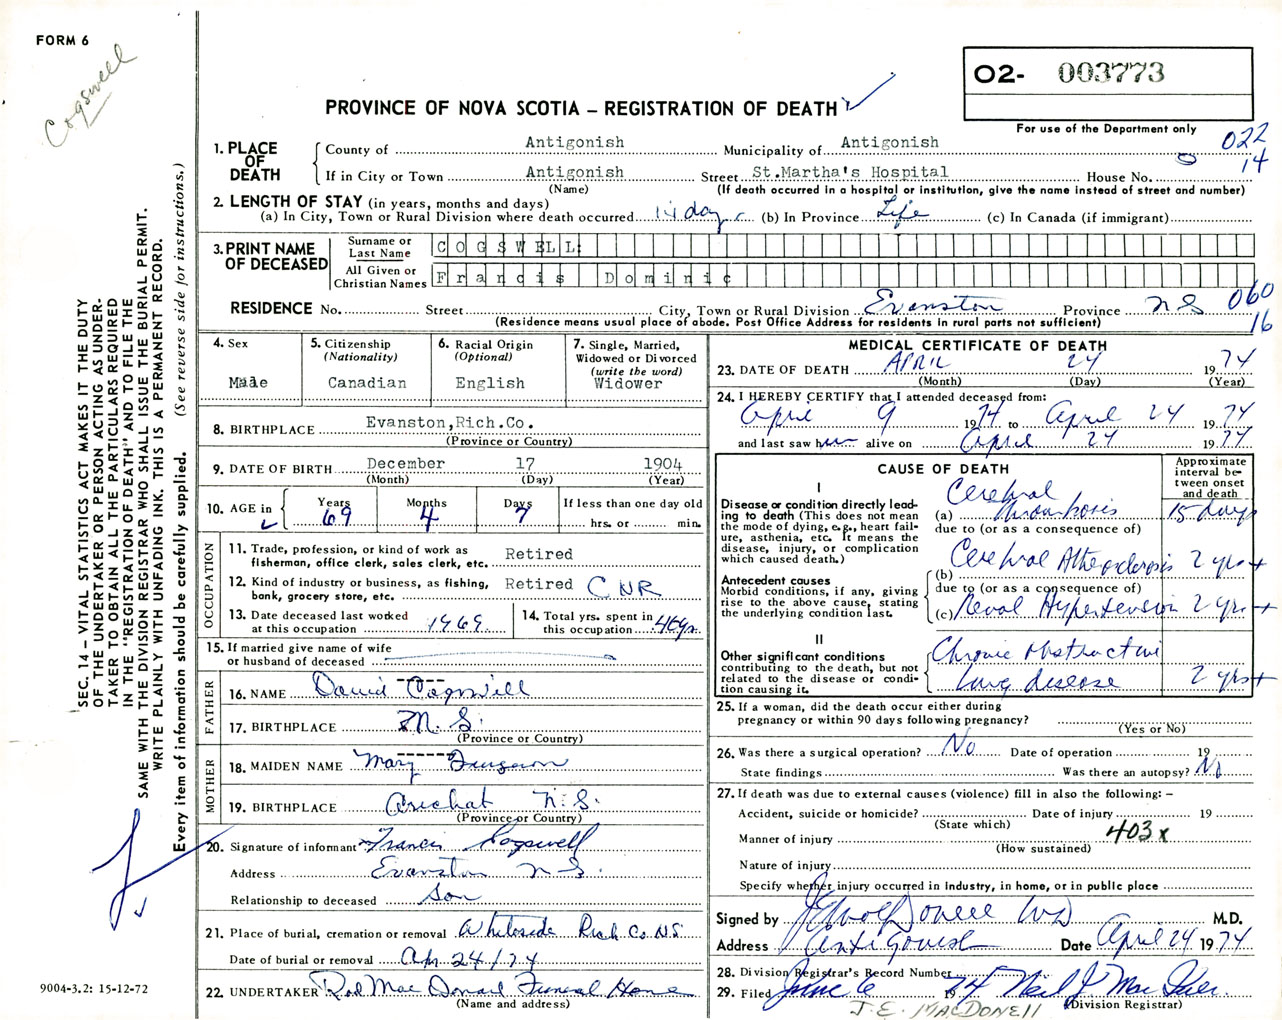 FORM 6
Cogswell
O2- 003773
PROVINCE OF NOVA SCOTIA – REGISTRATION OF DEATH
For use of the Department only
022
14
1. PLACE OF DEATH
County of Antigonish Municipality of Antigonish
If in City or Town Antigonish Street St.Martha's Hospital House No.
(Name) (If death occurred in a hospital or institution, give the name instead of street and number)
2. LENGTH OF STAY (in years, months and days)
(a) In City, Town or Rural Division where death occurred 14 days (b) In Province Life (c) In Canada (if immigrant)
3. PRINT NAME OF DECEASED
Surname or Last Name COGSWELL
All Given or Christian Names Francis Dominic
RESIDENCE No. Street City, Town or Rural Division Evanston Province N S
060
16
(Residence means usual place of abode. Post Office Address for residents in rural parts not sufficient)
4. Sex
Male
5. Citizenship (Nationality)
Canadian
6. Racial Origin (Optional)
English
7. Single, Married, Widowed or Divorced (write the word)
Widower
8. BIRTHPLACE Evanston,Rich.Co.
(Province or Country)
9. DATE OF BIRTH December 17 1904
(Month) (Day) (Year)
10. AGE in Years 69 Months 4 Days 7 If less than one day old hrs. or min.
OCCUPATION
11. Trade, profession, or kind of work as fisherman, office clerk, sales clerk, etc. Retired
12. Kind of industry or business, as fishing, bank, grocery store, etc. Retired CNR
13. Date deceased last worked at this occupation 1969
14. Total yrs. spent in this occupation 46 yrs.
15. If married give name of wife or husband of deceased
FATHER
16. NAME David Cogswell
17. BIRTHPLACE N. S.
(Province or Country)
MOTHER
18. MAIDEN NAME Mary Furgeson
19. BIRTHPLACE Arichat N. S.
(Province or Country)
20. Signature of informant Francis Cogswell
Address Evanston N S.
Relationship to deceased Son
21. Place of burial, cremation or removal Whiteside Rich Co. NS
Date of burial or removal Apr 24/74
22. UNDERTAKER Rod Mac Donald Funeral Home
(Name and address)
MEDICAL CERTIFICATE OF DEATH
23. DATE OF DEATH APRIL 24 1974
(Month) (Day) (Year)
24. I HEREBY CERTIFY that I attended deceased from:
April 9 1974 to April 24 1974
and last saw him alive on April 24 1974
CAUSE OF DEATH
Approximate interval between onset and death
I
Disease or condition directly leading to death (This does not mean the mode of dying, e.g., heart failure, asthenia, etc. It means the disease, injury, or complication which caused death.)
(a) Cerebral Thrombosis 15 days
due to (or as a consequence of)
Antecedent causes
Morbid conditions, if any, giving rise to the above cause, stating the underlying condition last.
(b) Cerebral Atherosclerosis 2 yrs +
due to (or as a consequence of)
(c) Renal Hypertension 2 yrs +
II
Other significant conditions contributing to the death, but not related to the disease or condition causing it.
Chronic Obstructive
Lung disease 2 yrs +
25. If a woman, did the death occur either during pregnancy or within 90 days following pregnancy?
(Yes or No)
26. Was there a surgical operation? No Date of operation 19
State findings Was there an autopsy? No
27. If death was due to external causes (violence) fill in also the following: –
Accident, suicide or homicide? Date of injury 19
(State which)
403x
Manner of injury
(How sustained)
Nature of injury
Specify whether injury occurred in Industry, in home, or in public place
Signed by M.D.
Address Antigonish Date April 24 1974
28. Division Registrar's Record Number
29. Filed June 6 1974 Neil J
(Division Registrar)
J. E. MACDONELL
SEC. 14 – VITAL STATISTICS ACT MAKES IT THE DUTY
OF THE UNDERTAKER OR PERSON ACTING AS UNDER-
TAKER TO OBTAIN ALL THE PARTICULARS REQUIRED
IN THE "REGISTRATION OF DEATH" AND TO FILE THE
SAME WITH THE DIVISION REGISTRAR WHO SHALL ISSUE THE BURIAL PERMIT.
WRITE PLAINLY WITH UNFADING INK. THIS IS A PERMANENT RECORD.
Every item of information should be carefully supplied. (See reverse side for instructions.)
9004-3.2: 15-12-72